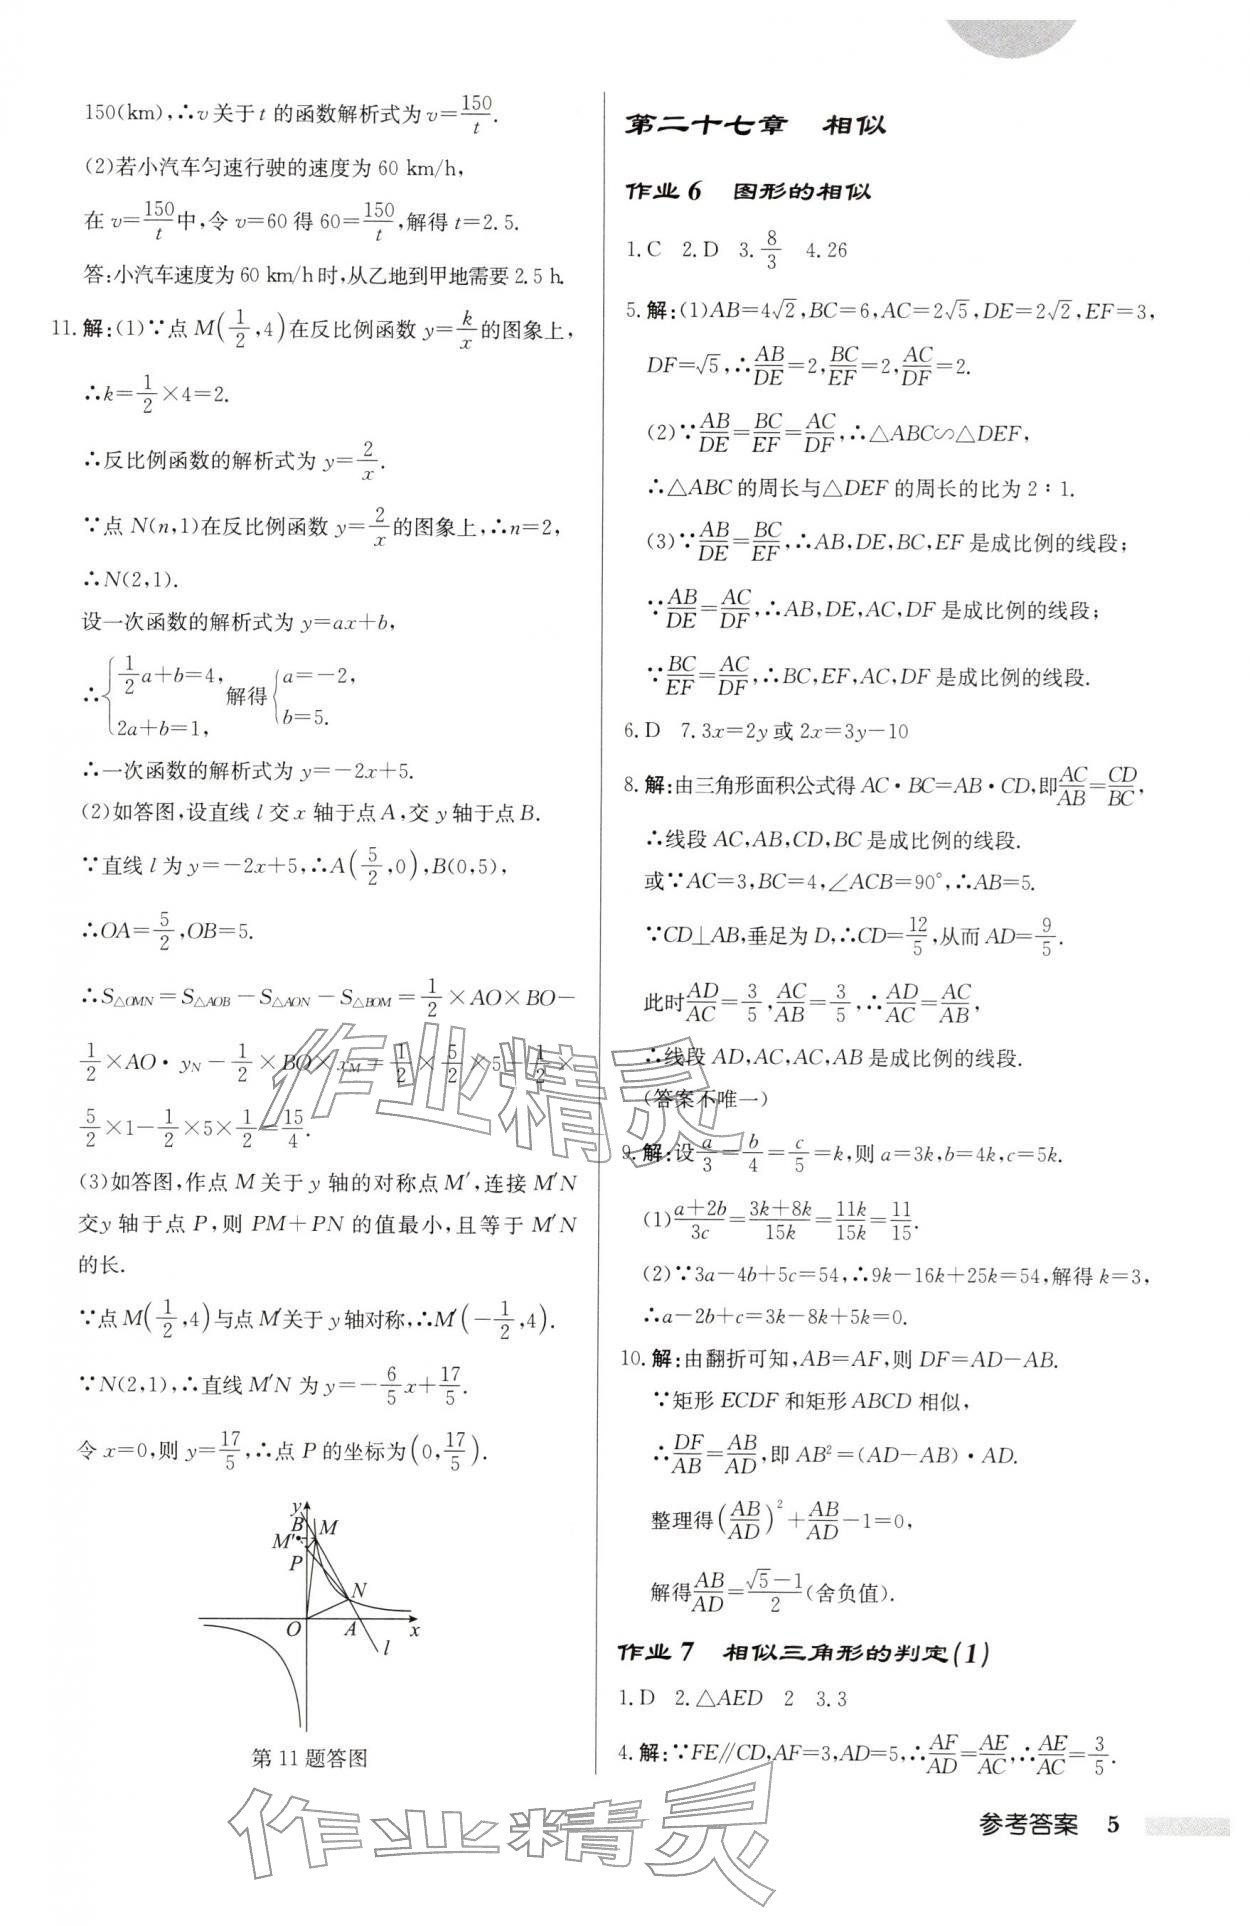 150(km),∴v关于t的函数解析式为v=150/t.
(2)若小汽车匀速行驶的速度为60 km/h,
在v=150/t中,令v=60得60=150/t,解得t=2.5.
答:小汽车速度为60 km/h时,从乙地到甲地需要2.5 h.
11.解:(1)∵点M(1/2,4)在反比例函数y=k/x的图象上,
∴k=1/2×4=2.
∴反比例函数的解析式为y=2/x.
∵点N(n,1)在反比例函数y=2/x的图象上,∴n=2,
∴N(2,1).
设一次函数的解析式为y=ax+b,
∴{1/2a+b=4, 2a+b=1, 解得{a=-2, b=5.
∴一次函数的解析式为y=-2x+5.
(2)如答图,设直线l交x轴于点A,交y轴于点B.
∵直线l为y=-2x+5,∴A(5/2,0),B(0,5),
∴OA=5/2,OB=5.
∴S△OMN=S△AOB-S△AON-S△BOM=1/2×AO×BO-
1/2×AO·yN-1/2×BO×xM=1/2×5/2×5-1/2×
5/2×1-1/2×5×1/2=15/4.
(3)如答图,作点M关于y轴的对称点M′,连接M′N
交y轴于点P,则PM+PN的值最小,且等于M′N
的长.
∵点M(1/2,4)与点M′关于y轴对称,∴M′(-1/2,4).
∵N(2,1),∴直线M′N为y=-6/5x+17/5.
令x=0,则y=17/5,∴点P的坐标为(0,17/5).
y
B
M
M′
P
N
O
A
x
l
第11题答图
第二十七章 相似
作业6 图形的相似
1.C 2.D 3.8/3 4.26
5.解:(1)AB=4√2,BC=6,AC=2√5,DE=2√2,EF=3,
DF=√5,∴AB/DE=2,BC/EF=2,AC/DF=2.
(2)∵AB/DE=BC/EF=AC/DF,∴△ABC∽△DEF,
∴△ABC的周长与△DEF的周长的比为2∶1.
(3)∵AB/DE=BC/EF,∴AB,DE,BC,EF是成比例的线段;
∵AB/DE=AC/DF,∴AB,DE,AC,DF是成比例的线段;
∵BC/EF=AC/DF,∴BC,EF,AC,DF是成比例的线段.
6.D 7.3x=2y或2x=3y-10
8.解:由三角形面积公式得AC·BC=AB·CD,即AC/AB=CD/BC,
∴线段AC,AB,CD,BC是成比例的线段.
或∵AC=3,BC=4,∠ACB=90°,∴AB=5.
∵CD⊥AB,垂足为D,∴CD=12/5,从而AD=9/5.
此时AD/AC=3/5,AC/AB=3/5,∴AD/AC=AC/AB,
∴线段AD,AC,AC,AB是成比例的线段.
(答案不唯一)
9.解:设a/3=b/4=c/5=k,则a=3k,b=4k,c=5k.
(1)a+2b/3c=3k+8k/15k=11k/15k=11/15.
(2)∵3a-4b+5c=54,∴9k-16k+25k=54,解得k=3,
∴a-2b+c=3k-8k+5k=0.
10.解:由翻折可知,AB=AF,则DF=AD-AB.
∵矩形ECDF和矩形ABCD相似,
∴DF/AB=AB/AD,即AB²=(AD-AB)·AD.
整理得(AB/AD)²+AB/AD-1=0,
解得AB/AD=√5-1/2(舍负值).
作业7 相似三角形的判定(1)
1.D 2.△AED 2 3.3
4.解:∵FE∥CD,AF=3,AD=5,∴AF/AD=AE/AC,∴AE/AC=3/5.
参考答案 5
作业精灵
作业精灵